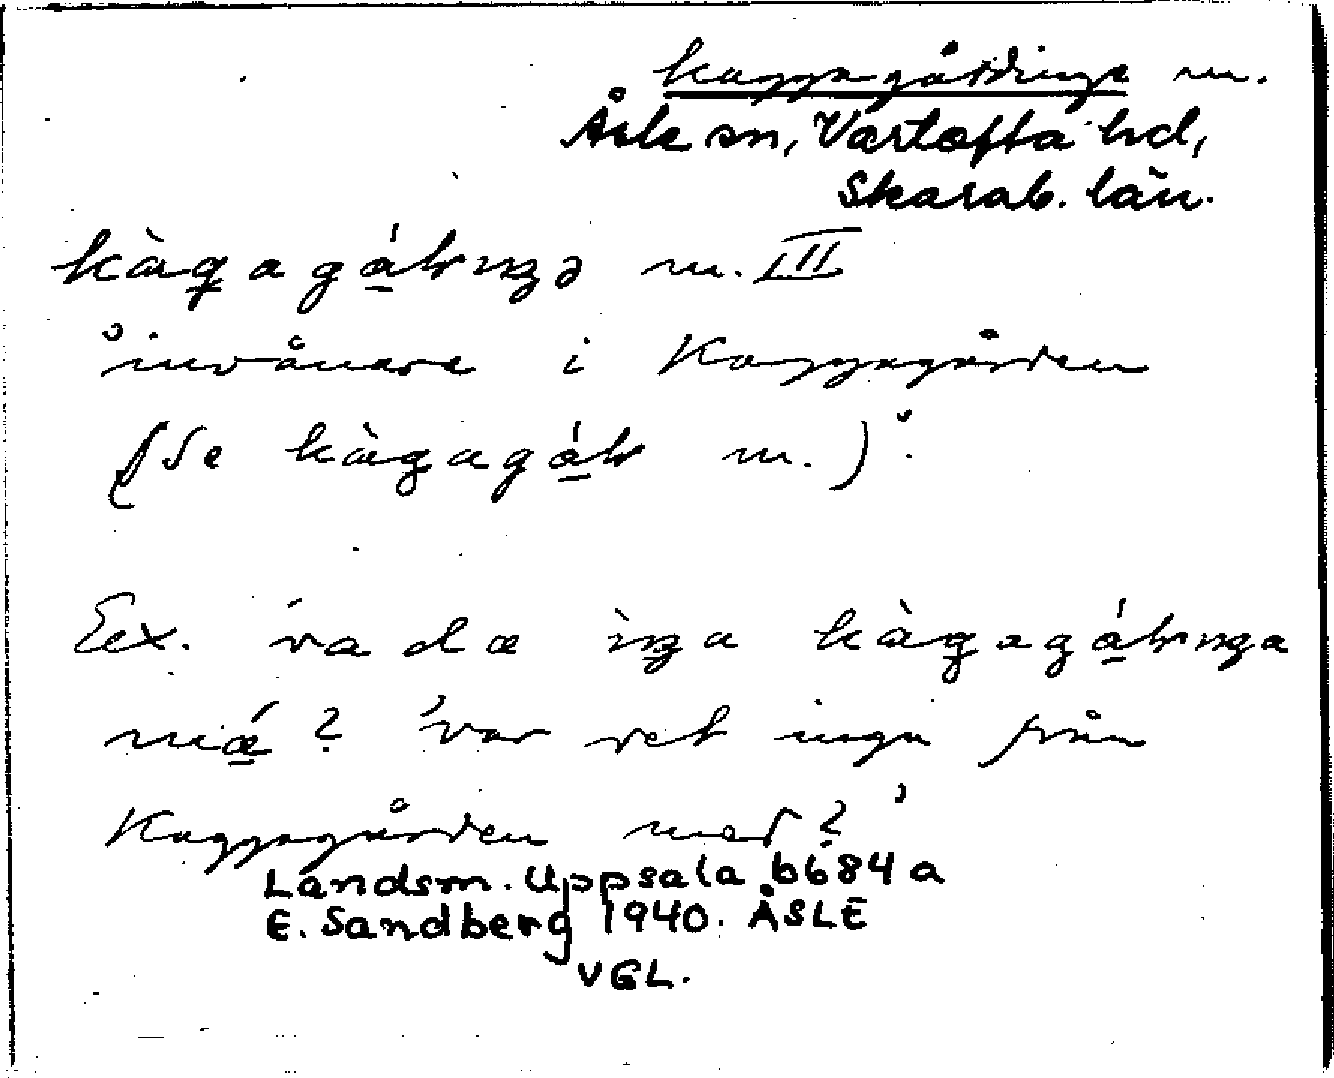 kaggagårdinge m.
Åsle sn, Vartofta hd,
Skarab. län.
kàgagáɹŋə m. III
'invånare i Kaggagården
(Se kàgagáɹ m.)'.
Ex. va dæ ìŋa kàgagáɹŋa
mǽ? 'var det inga från
Kaggagården med?'
Landsm. Uppsala 6684 a
E. Sandberg 1940. ÅSLE
VGL.